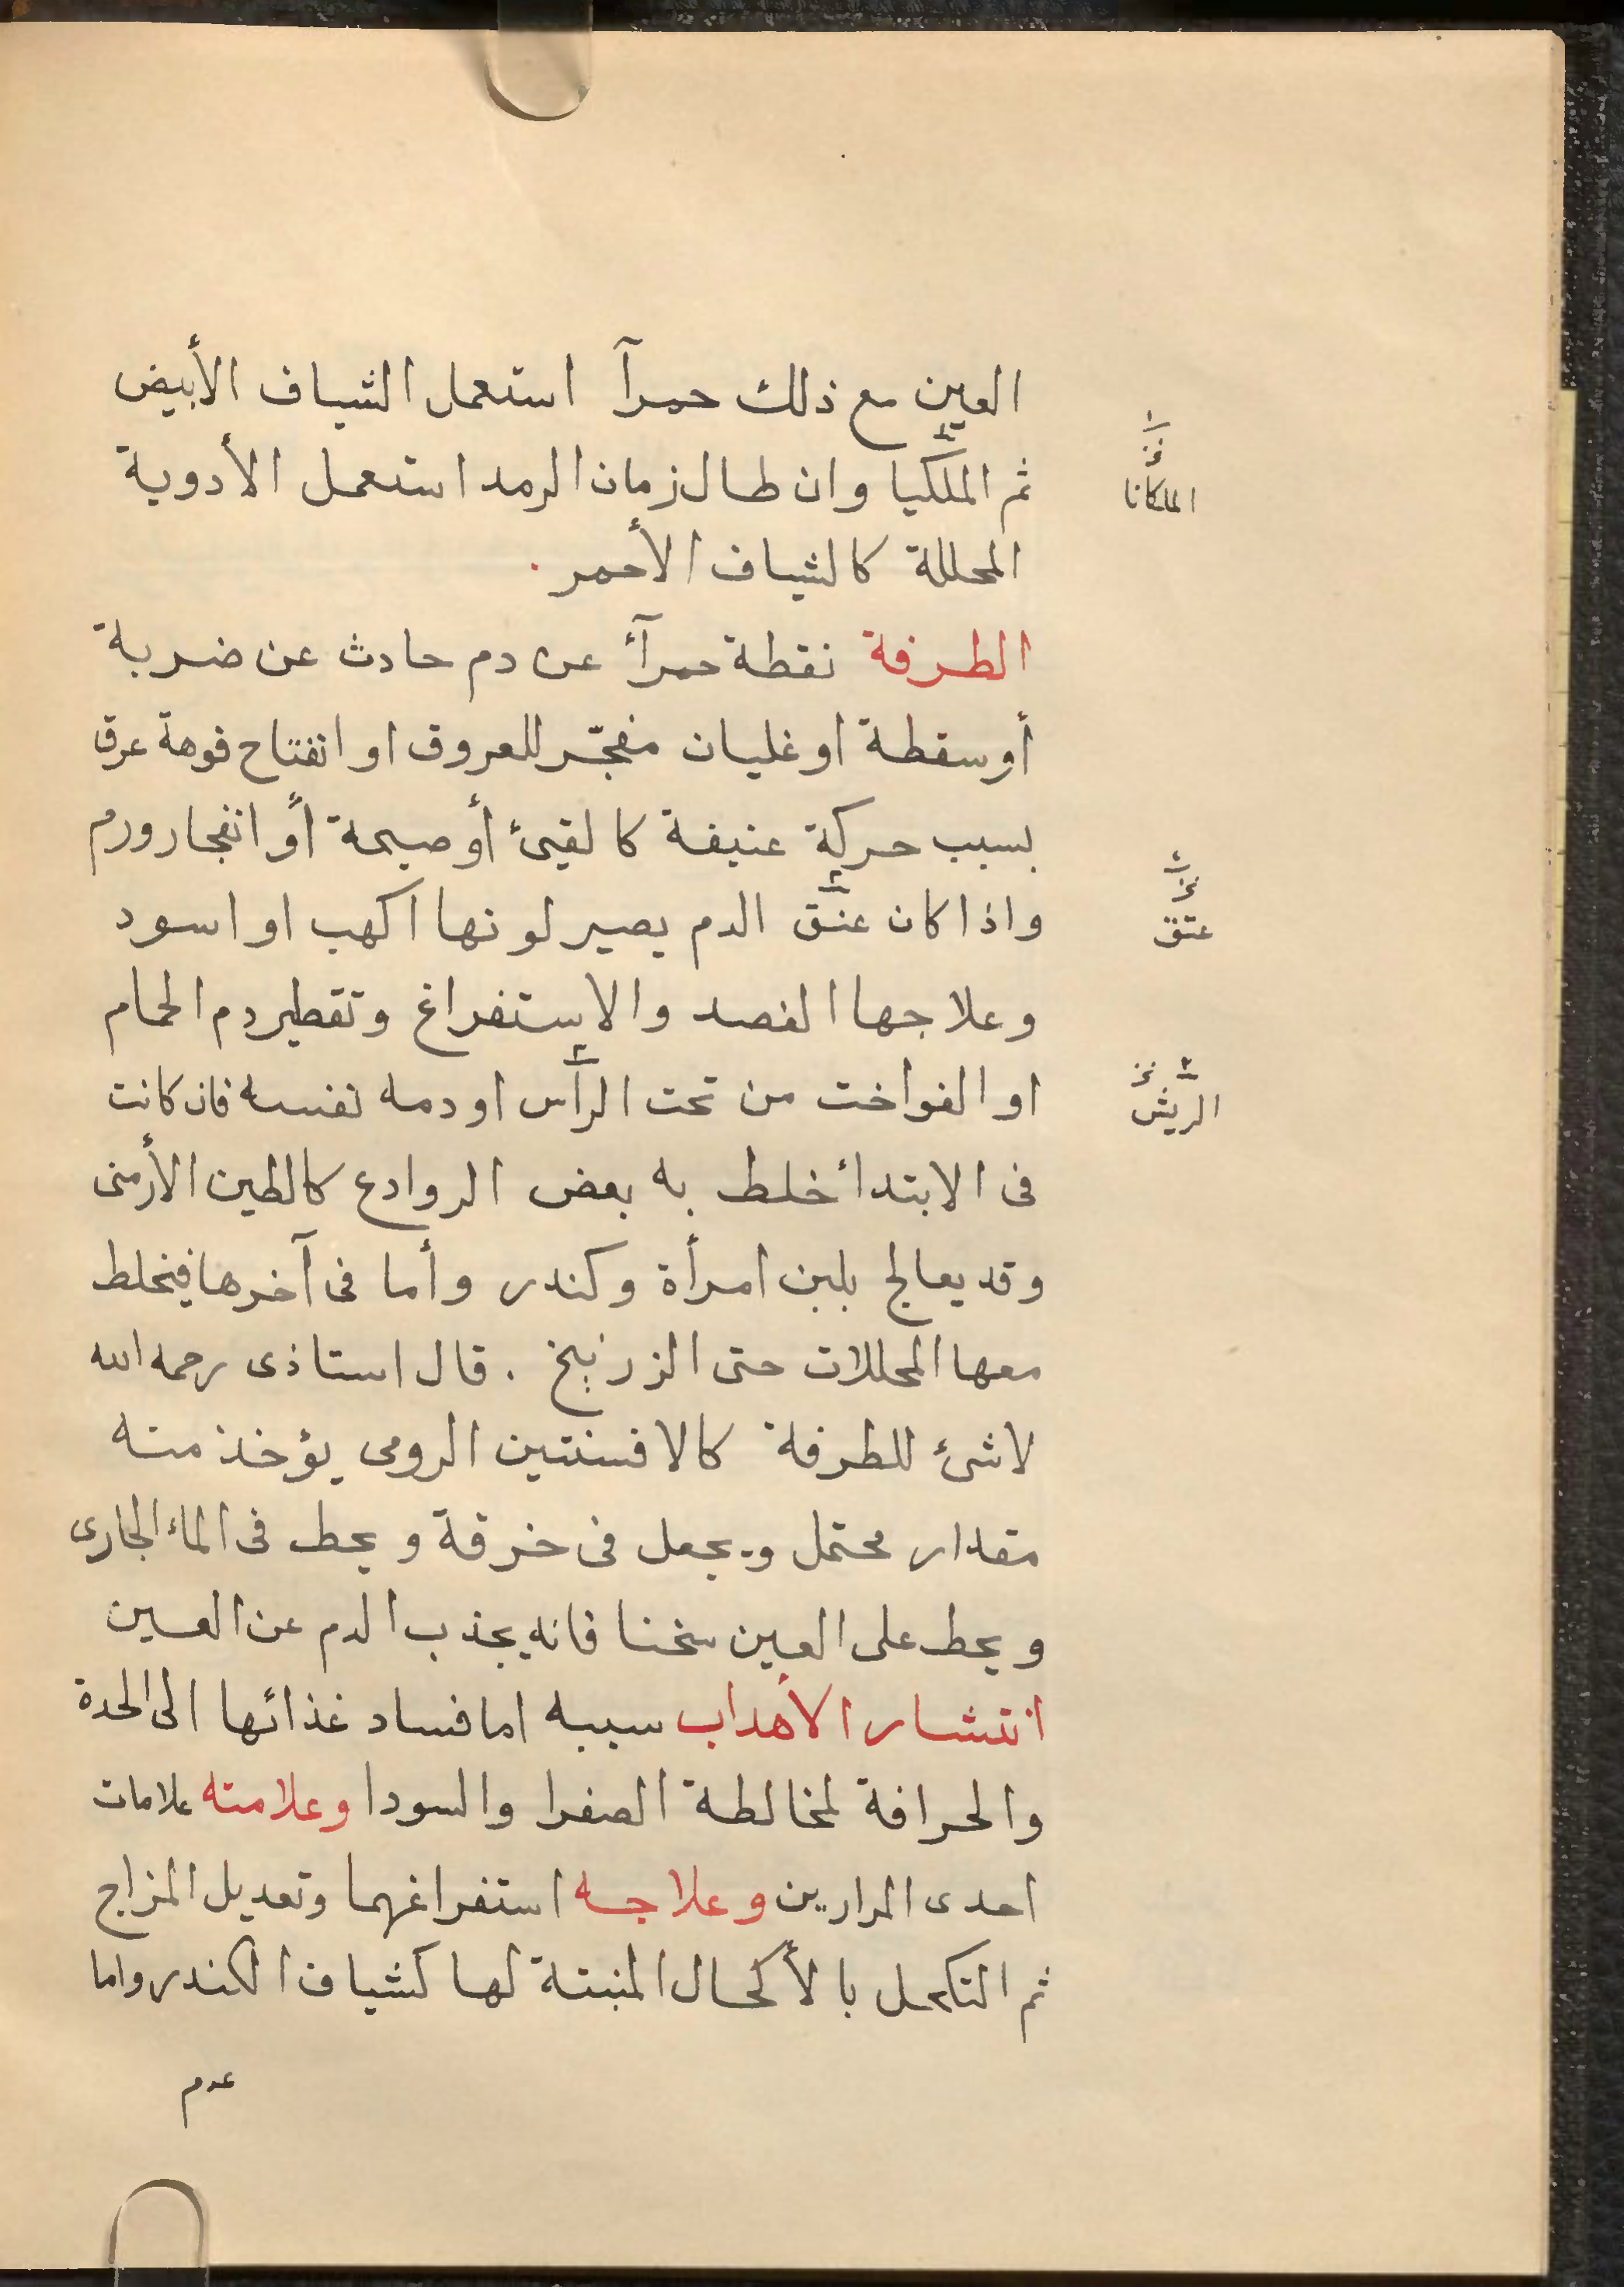 العين مع ذلك حمرآ استعمل الشياف الأبيض
ثم الملكيا وان طال زمان الرمد استعمل الأدوية
المحللة كالشياف الأحمر .
الطرفة نقطة حمرآئ عن دم حادث عن ضربة
أو سقطة او غليان مفجّر للعروق او انفتاح فوهة عرق
بسبب حركة عنيفة كالقيئ أو صيحة أو انفجار ورم
واذا كان عتق الدم يصير لونها اكهب او اسود
وعلاجها الفصد والاستفراغ وتقطير دم الحمام
او الفواخت من تحت الرأس او دمه نفسه فان كانت
فى الابتدائ خلط به بعض الروادع كالطين الأرمنى
وقد يعالج بلبن امرأة وكندر وأما فى آخرها فيخلط
معها المحللات حتى الزرنيخ . قال استاذى رحمه الله
لاشئ للطرفة كالافسنتين الرومى يؤخذ منه
مقدار محتمل ويجعل فى خرقة ويحط فى الماء الجارى
ويحط على العين سخنا فانه يجذب الدم عن العين
انتشار الأهداب سببه اما فساد غذائها الى الحدة
والحرافة لمخالطة الصفرا والسودا وعلامته علامات
احدى المرارين وعلاجه استفراغهما وتعديل المزاج
ثم التكحل بالأكحال المنبتة لها كشياف الكندر واما
عدم
١ نخ
الملكانا
٢ نخ
عتق
٣ نخ
الريش